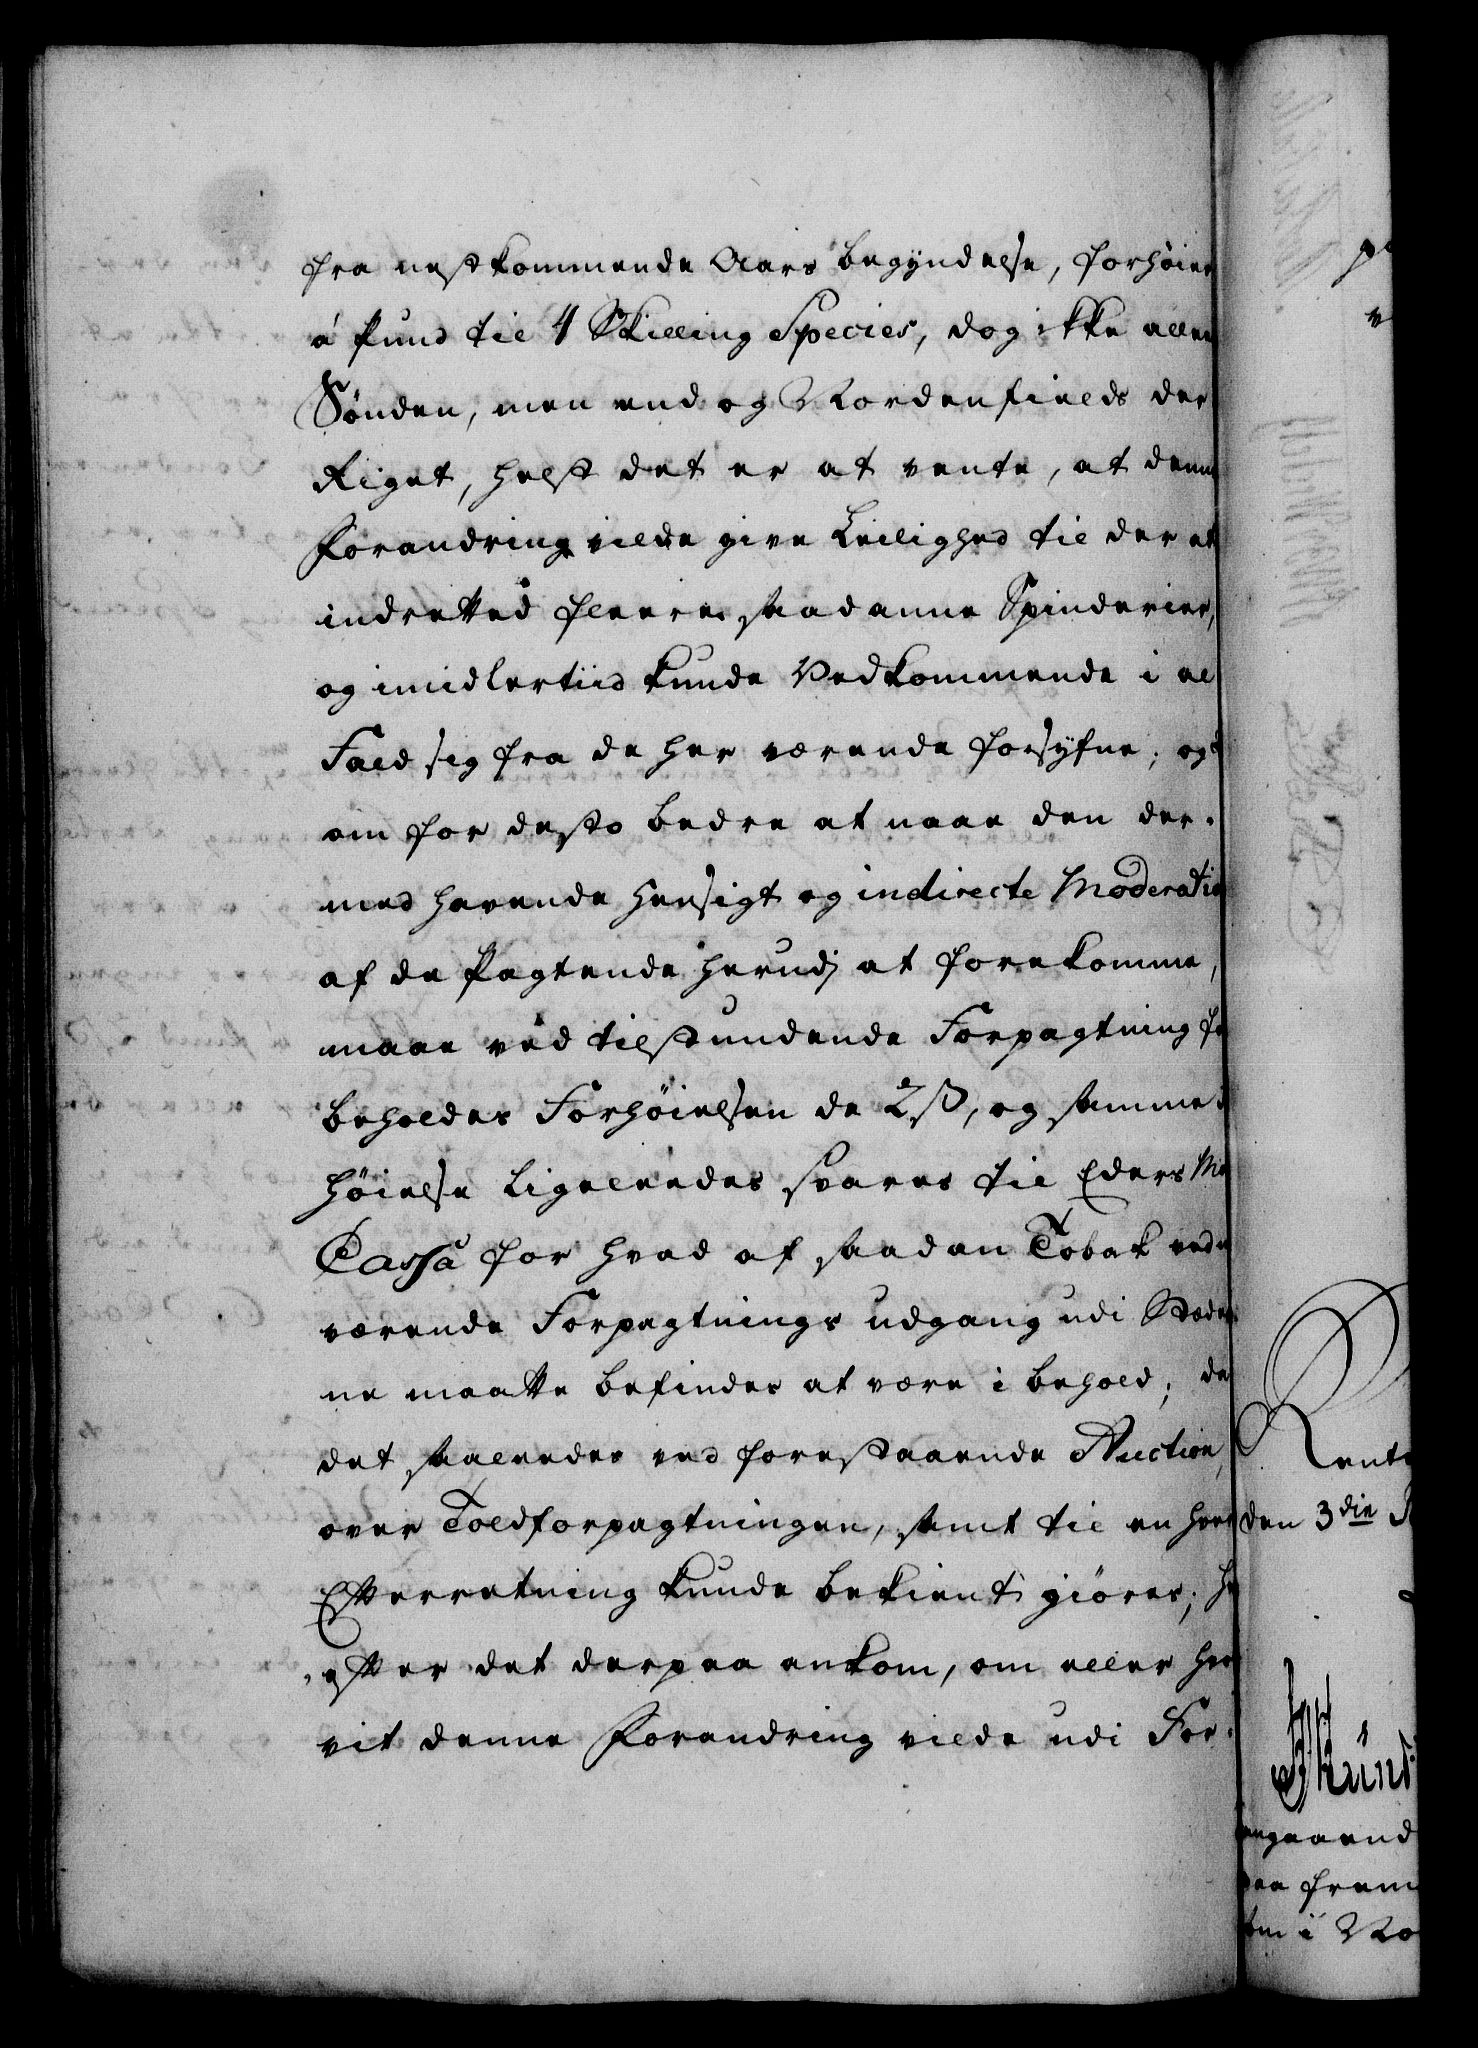 fra nestkommende Aars begyndelse, forhøies
á Pund til 4 Skilling Species, dog ikke allene
Sønden, men end og Nordenfields der
Riget, helst det er at vente, at denne
Forandring vilde give Leilighed til der at
indretted fleere saadanne Spinderier,
og imidlertiid kunde Vedkommende i al
Fald sig fra de her værende forsyfne; og
om for desto bedre at naae den der-
med havende Hensigt og indirecte Moderatio
af de Pagtende herudj at forekomme,
maae ved tilstundende Forpagtning for
beholdes Forhøielsen de 2 ß, og samme
høielse ligeleedes svares til Eders Ma
Cassa for hvad af saadan Tobak ved n
værende Forpagtnings udgang udi Stæder
ne maatte befindes at være i behold; da
det saaleedes ved forestaaende Auction,
over Toldforpagtningen, samt til en hver
Efterretning kunde bekient giøres; h
efter det derpaa ankom, om eller hvor
vit denne Forandring vilde udi For-
Rente
den 3die
angaaend
paa frem
i No